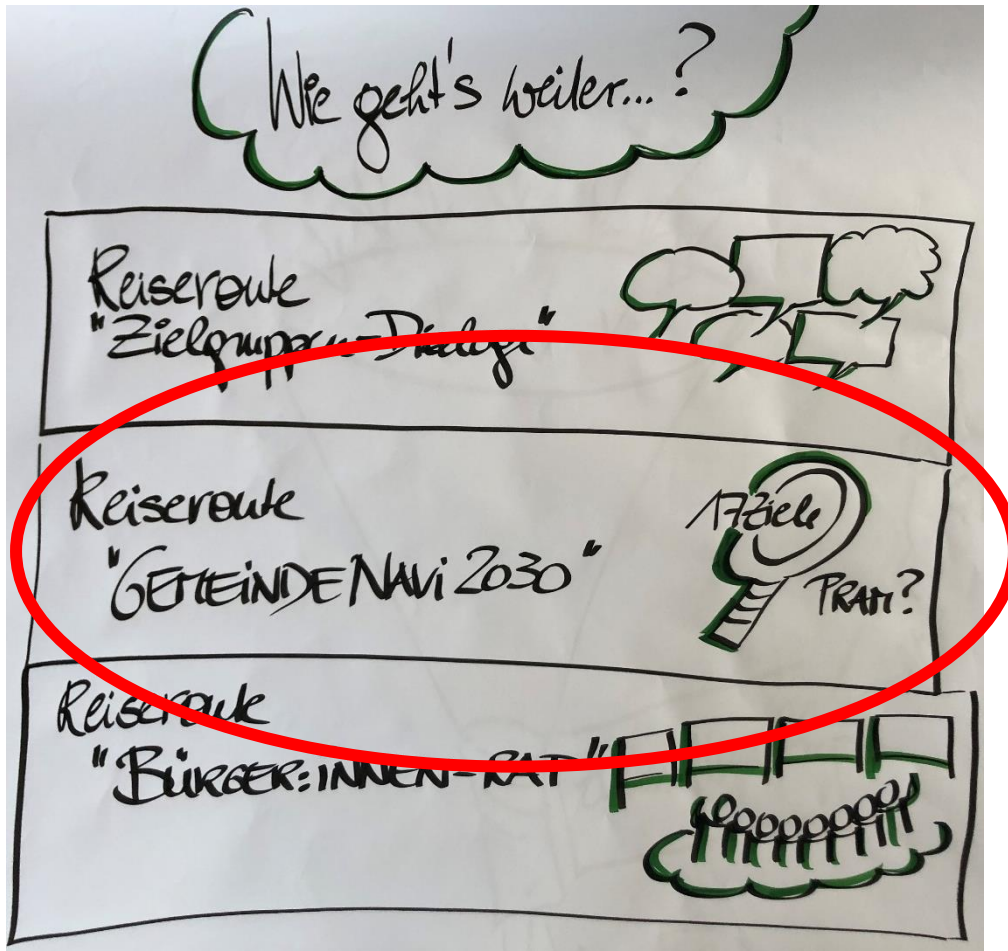 Wie geht's weiter...?
Reiseroute
"Zielgruppen-Dialoge"
Reiseroute
"GEMEINDE NAVi 2030"
17 Ziele
PRAM?
Reiseroute
"BÜRGER:iNNEN-RAT"